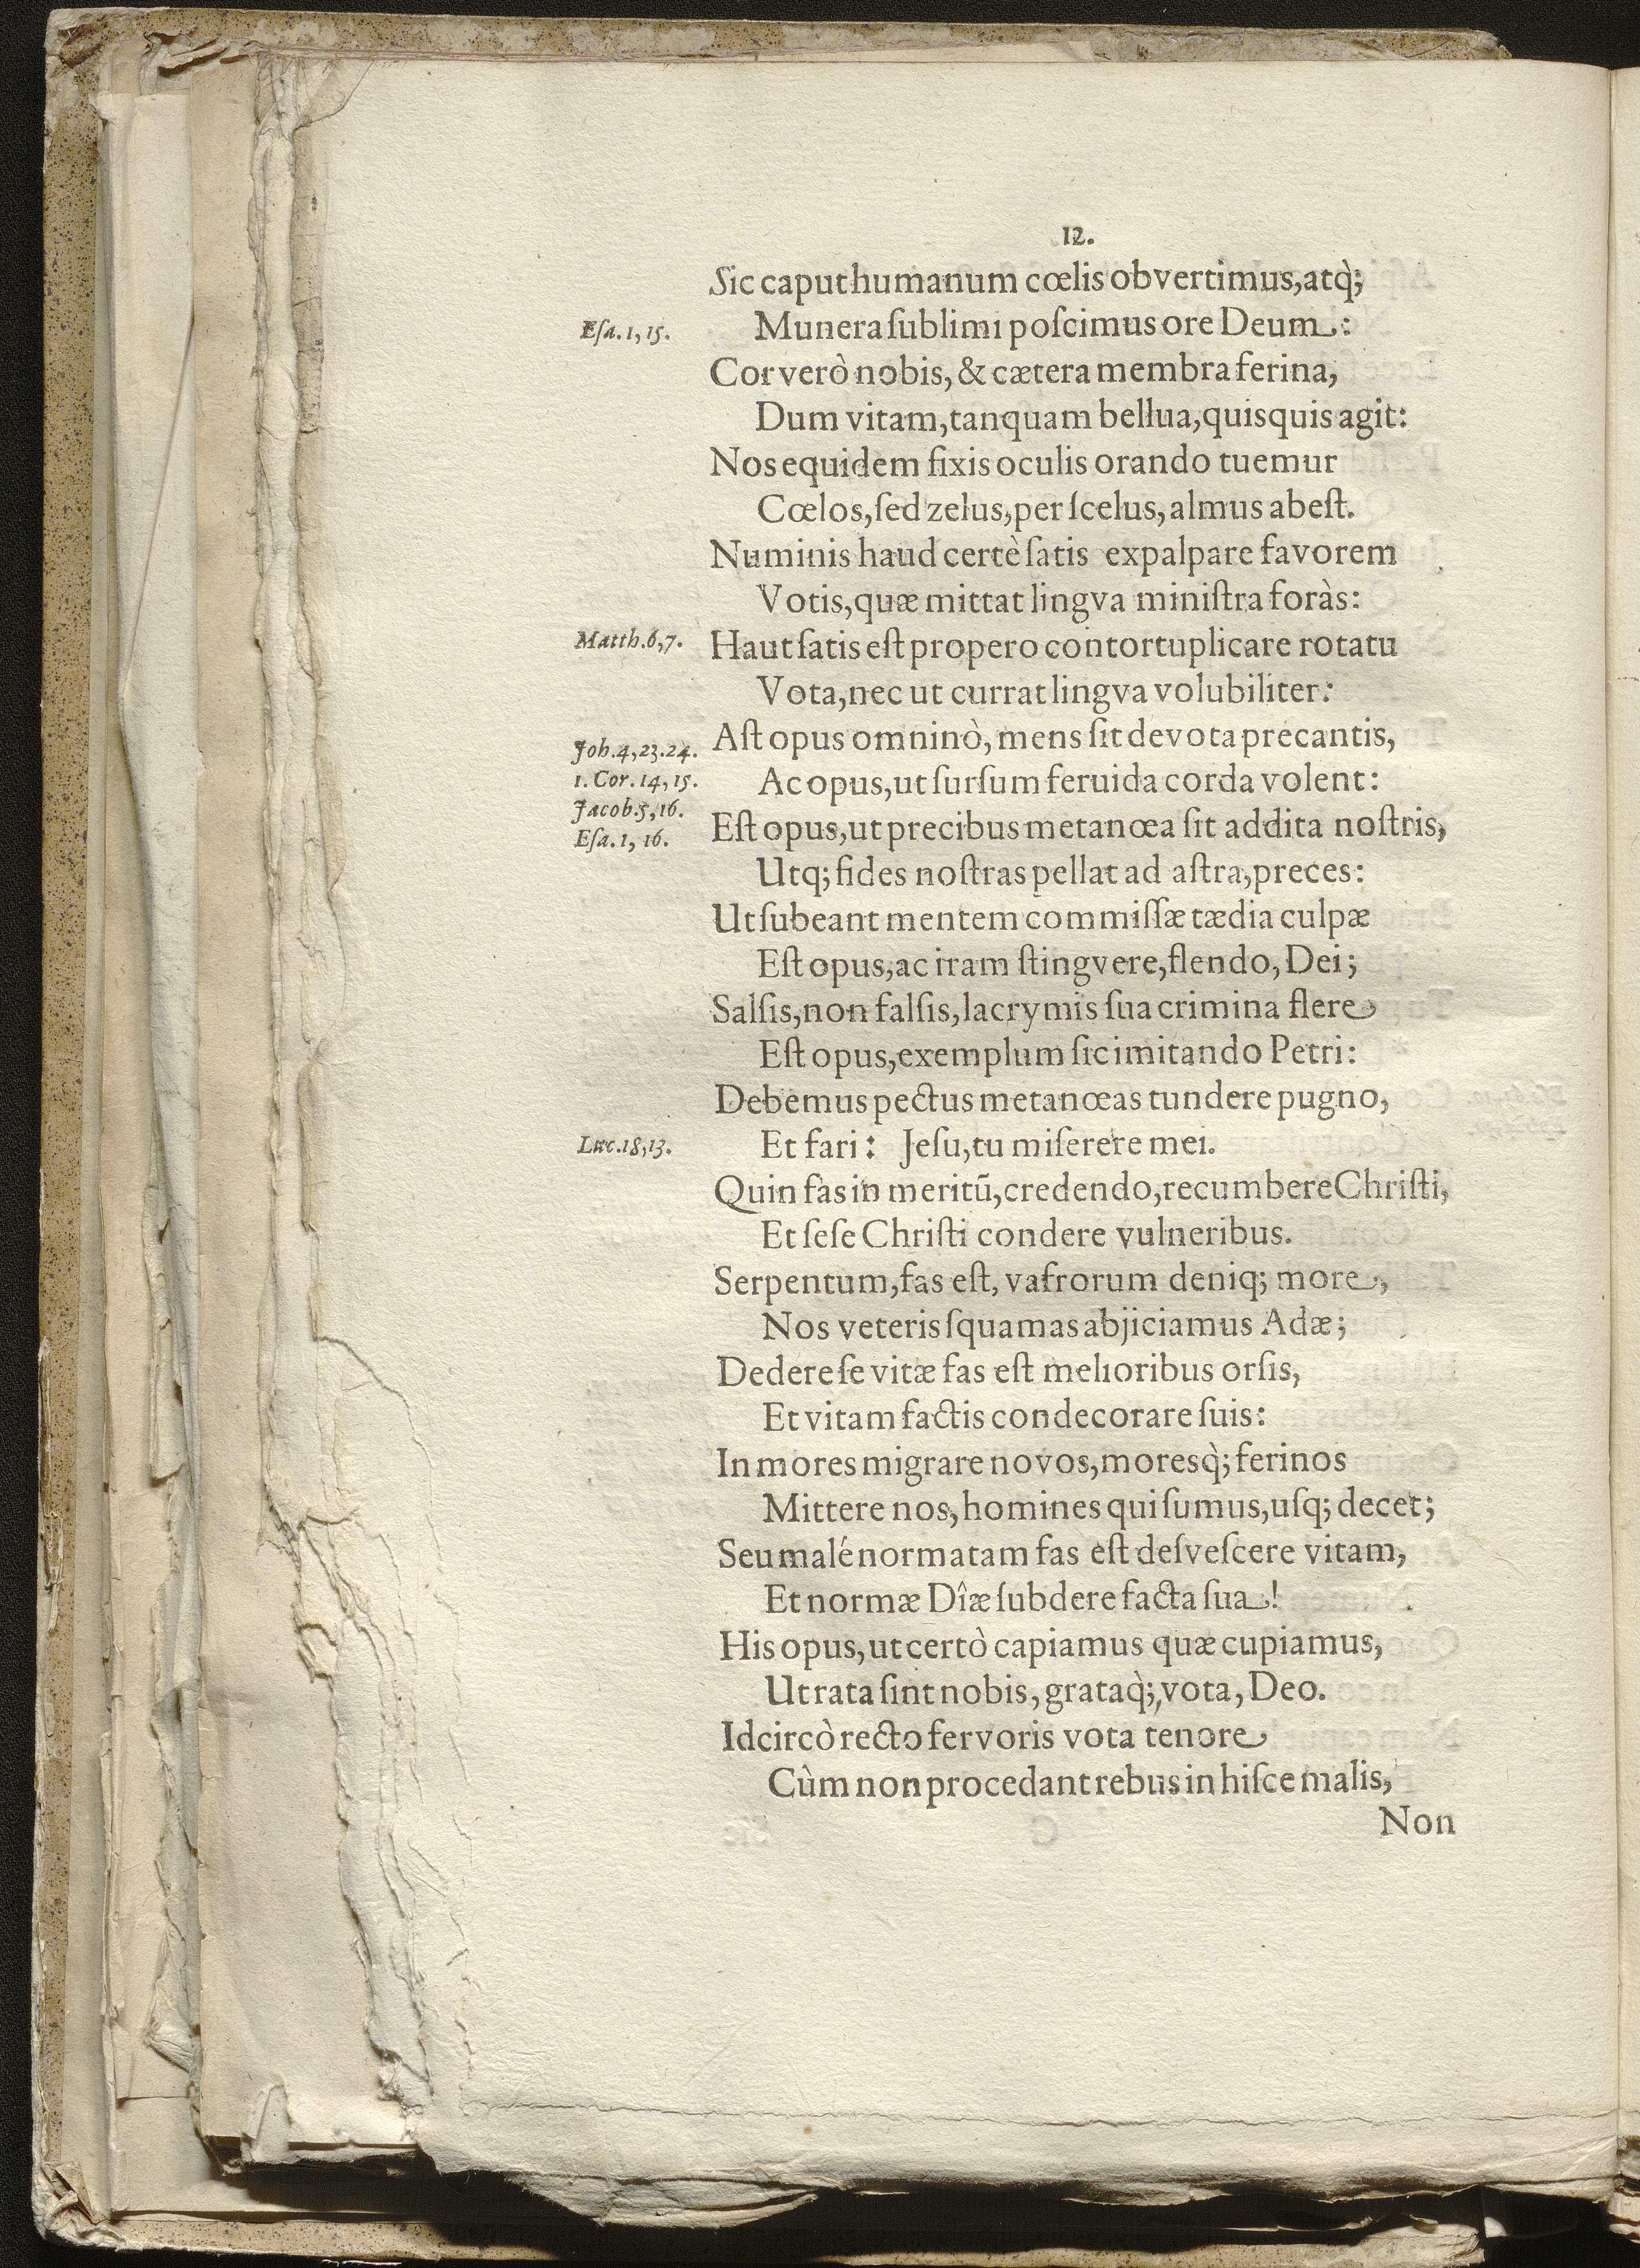 12.
Sic caput humanum cœlis obvertimus, atq̀;
Esa. 1, 15.
Munera ſublimi poſcimus ore Deum:
Cor verò nobis, & cætera membra ferina,
Dum vitam, tanquam bellua, quisquis agit:
Nos equidem fixis oculis orando tuemur
Cœlos, ſed zelus, per ſcelus, almus abeſt.
Numinis haud certè ſatis expalpare favorem
Votis, quæ mittat lingva miniſtra foràs:
Matth. 6, 7.
Haut ſatis eſt propero contortuplicare rotatu
Vota, nec ut currat lingva volubiliter:
Joh. 4, 23. 24.
Aſt opus omninò, mens ſit devota precantis,
1. Cor. 14, 15.
Ac opus, ut ſurſum feruida corda volent:
Jacob. 5, 16.
Eſa. 1, 16.
Eſt opus, ut precibus metanœa ſit addita noſtris,
Utq; fides noſtras pellat ad aſtra, preces:
Ut ſubeant mentem commiſſæ tædia culpæ
Eſt opus, ac iram ſtingvere, flendo, Dei;
Salſis, non falſis, lacrymis ſua crimina flere
Eſt opus, exemplum ſic imitando Petri:
Debemus pectus metanœas tundere pugno,
Luc. 18, 13.
Et fari: Jeſu, tu miſerere mei.
Quin fas in meritū, credendo, recumbere Chriſti,
Et ſeſe Chriſti condere vulneribus.
Serpentum, fas eſt, vafrorum deniq; more,
Nos veteris ſquamas abjiciamus Adæ;
Dedere ſe vitæ fas eſt melioribus orſis,
Et vitam factis condecorare ſuis:
In mores migrare novos, moresq̀; ferinos
Mittere nos, homines qui ſumus, uſq; decet;
Seu malé normatam fas eſt deſveſcere vitam,
Et normæ Dîæ ſubdere facta ſua!
His opus, ut certò capiamus quæ cupiamus,
Ut rata ſint nobis, grataq̀;, vota, Deo.
Idcircò recto fervoris vota tenore
Cùm non procedant rebus in hiſce malis,
Non